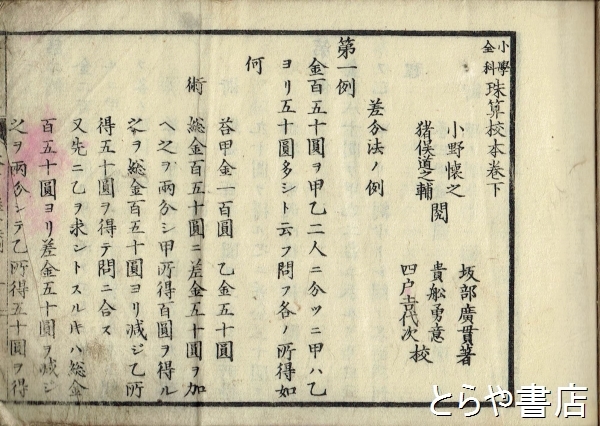 小學全科 珠算校本巻下
坂部廣貫著
小野懷之
猪俣道之輔 閲
貴舩勇意
四戸吉代次 校
差分法ノ例
第一例
金百五十圓ヲ甲乙二人ニ分ツニ甲ハ乙
ヨリ五十圓多シト云フ問フ各ノ所得如
何
荅甲金一百圓 乙金五十圓
術 総金百五十圓ニ差金五十圓ヲ加
ヘ之ヲ兩分シ甲所得百圓ヲ得ル
之ヲ総金百五十圓ヨリ減ジ乙所
得五十圓ヲ得テ問ニ合ス
又先ニ乙ヲ求ントスルキハ総金
百五十圓ヨリ差金五十圓ヲ減ジ
之ヲ兩分シテ乙所得五十圓ヲ得
とらや書店